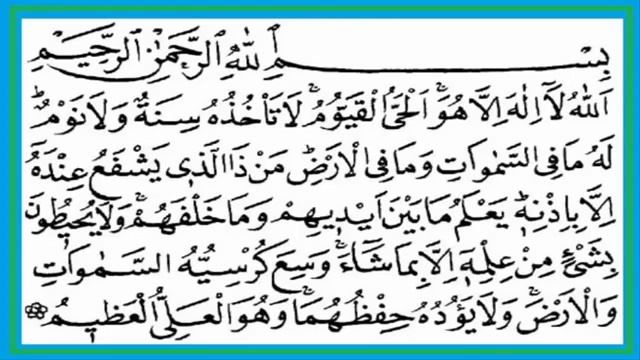 بِسْمِ اللهِ الرَّحْمٰنِ الرَّحِيْمِ
اَللهُ لَآ اِلٰهَ اِلَّا هُوَۚ اَلْحَىُّ الْقَيُّوْمُ ۚ لَا تَاْخُذُهٗ سِنَةٌ وَّلَا نَوْمٌ ؕ
لَهٗ مَا فِى السَّمٰوَاتِ وَمَا فِى الْاَرْضِؕ مَنْ ذَا الَّذِىْ يَشْفَعُ عِنْدَهٗٓ
اِلَّا بِاِذْنِهٖؕ يَعْلَمُ مَا بَيْنَ اَيْدِيْهِمْ وَمَا خَلْفَهُمْۚ وَلَا يُحِيْطُوْنَ
بِشَىْءٍ مِّنْ عِلْمِهٖٓ اِلَّا بِمَا شَآءَۚ وَسِعَ كُرْسِيُّهُ السَّمٰوَاتِ
وَالْاَرْضَۚ وَلَا يَؤُدُهٗ حِفْظُهُمَاۚ وَهُوَ الْعَلِىُّ الْعَظِيْمُ